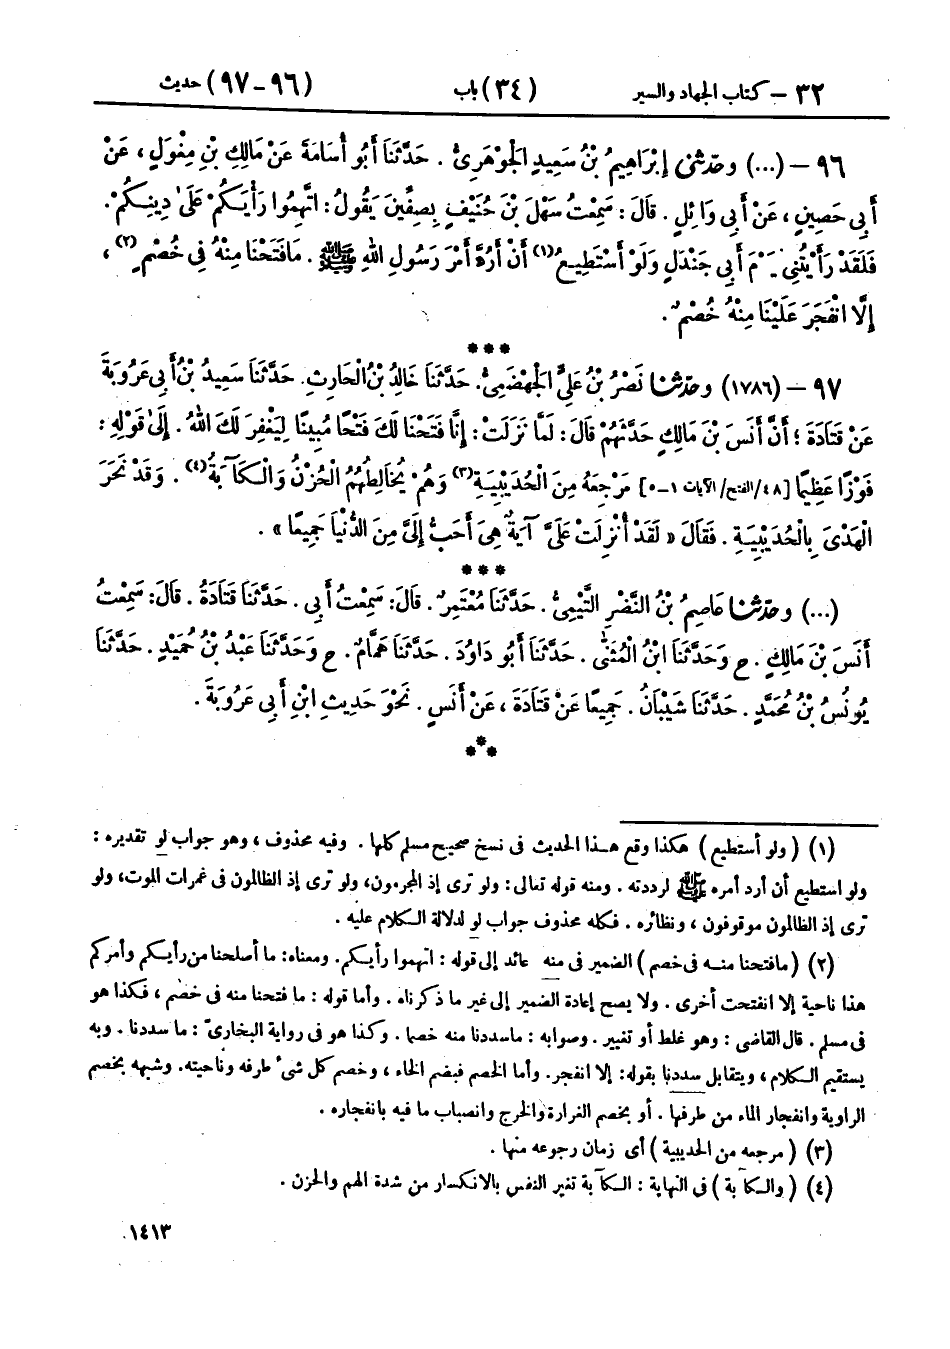 ٣٢ – كتاب الجهاد والسير (٣٤) باب (٩٦ – ٩٧) حديث
٩٦ – (...) وحدثنى إِبْرَاهِيمُ بْنُ سَعِيدٍ الْجَوْهَرِىُّ . حَدَّثَنَا أَبُو أُسَامَةَ عَنْ مَالِكِ بْنِ مِغْوَلٍ ، عَنْ
أَبِى حَصِينٍ ، عَنْ أَبِى وَائِلٍ . قَالَ : سَمِعْتُ سَهْلَ بْنَ حُنَيْفٍ بِصِفِّينَ يَقُولُ : اتَّهِمُوا رَأْيَكُمْ عَلَى دِينِكُمْ .
فَلَقَدْ رَأَيْتُنِى يَوْمَ أَبِى جَنْدَلٍ وَلَوْ أَسْتَطِيعُ(١) أَنْ أَرُدَّ أَمْرَ رَسُولِ اللهِ ﷺ . مَا فَتَحْنَا مِنْهُ فِى خُصْمٍ(٢) ،
إِلَّا انْفَجَرَ عَلَيْنَا مِنْهُ خُصْمٌ .
***
٩٧ – (١٧٨٦) وحدثنا نَصْرُ بْنُ عَلِىٍّ الْجَهْضَمِىُّ . حَدَّثَنَا خَالِدُ بْنُ الْحَارِثِ . حَدَّثَنَا سَعِيدُ بْنُ أَبِى عَرُوبَةَ
عَنْ قَتَادَةَ ؛ أَنَّ أَنَسَ بْنَ مَالِكٍ حَدَّثَهُمْ قَالَ : لَمَّا نَزَلَتْ : إِنَّا فَتَحْنَا لَكَ فَتْحًا مُبِينًا لِيَغْفِرَ لَكَ اللهُ . إِلَى قَوْلِهِ :
فَوْزًا عَظِيمًا [٤٨/الفتح/ الآيات ١-٥] مَرْجِعَهُ مِنَ الْحُدَيْبِيَةِ(٣) وَهُمْ يُخَالِطُهُمُ الْحُزْنُ وَالْكَآبَةُ(٤) . وَقَدْ نَحَرَ
الْهَدْىَ بِالْحُدَيْبِيَةِ . فَقَالَ « لَقَدْ أُنْزِلَتْ عَلَىَّ آيَةٌ هِىَ أَحَبُّ إِلَىَّ مِنَ الدُّنْيَا جَمِيعًا » .
***
(...) وحدثنا عَاصِمُ بْنُ النَّضْرِ التَّيْمِىُّ . حَدَّثَنَا مُعْتَمِرٌ . قَالَ : سَمِعْتُ أَبِى . حَدَّثَنَا قَتَادَةُ . قَالَ : سَمِعْتُ
أَنَسَ بْنَ مَالِكٍ . ح وَحَدَّثَنَا ابْنُ الْمُثَنَّى . حَدَّثَنَا أَبُو دَاوُدَ . حَدَّثَنَا هَمَّامٌ . ح وَحَدَّثَنَا عَبْدُ بْنُ حُمَيْدٍ . حَدَّثَنَا
يُونُسُ بْنُ مُحَمَّدٍ . حَدَّثَنَا شَيْبَانُ . جَمِيعًا عَنْ قَتَادَةَ ، عَنْ أَنَسٍ . نَحْوَ حَدِيثِ ابْنِ أَبِى عَرُوبَةَ .
***
(١) ( ولو أستطيع ) هكذا وقع هـذا الحديث فى نسخ صحيح مسلم كلها . وفيه محذوف ، وهو جواب لو تقديره :
ولو استطيع أن أرد أمره ﷺ لرددته . ومنه قوله تعالى : ولو ترى إذ المجرمون، ولو ترى إذ الظالمون فى غمرات الموت، ولو
ترى إذ الظالمون موقوفون ، ونظائره . فكله محذوف جواب لو لدلالة الكلام عليه .
(٢) ( مافتحنا منـه فى خصم ) الضمير فى منه عائد إلى قوله : اتهموا رأيكم. ومعناه: ما أصلحنا من رأيكم وأمركم
هذا ناحية إلا انفتحت أخرى . ولا يصح إعادة الضمير إلى غير ما ذكرناه . وأما قوله : ما فتحنا منه فى خصم ، فكذا هو
فى مسلم . قال القاضى : وهو غلط أو تغيير . وصوابه : ماسددنا منه خصما . وكذا هو فى رواية البخارىّ : ما سددنا . وبه
يستقيم الكلام ، ويتقابل سددنا بقوله: إلا انفجر. وأما الخصم فبضم الخاء ، وخصم كل شىء طرفه وناحيته. وشبهه بخصم
الراوية وانفجار الماء من طرفها . أو بخصم الغرارة والخرج وانصباب ما فيه بانفجاره .
(٣) ( مرجعه من الحديبية ) أى زمان رجوعه منها .
(٤) ( والكآبة ) فى النهاية : الكآبة تغير النفس بالانكسار من شدة الهم والحزن .
١٤١٣